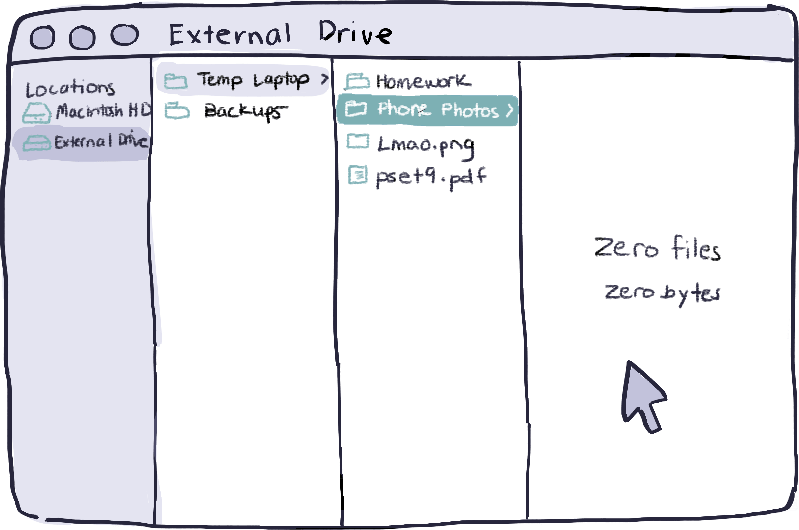 External Drive
Locations
Macintosh HD
External Drive
Temp Laptop >
Backups
Homework
Phone Photos >
Lmao.png
pset9.pdf
Zero files
zero bytes